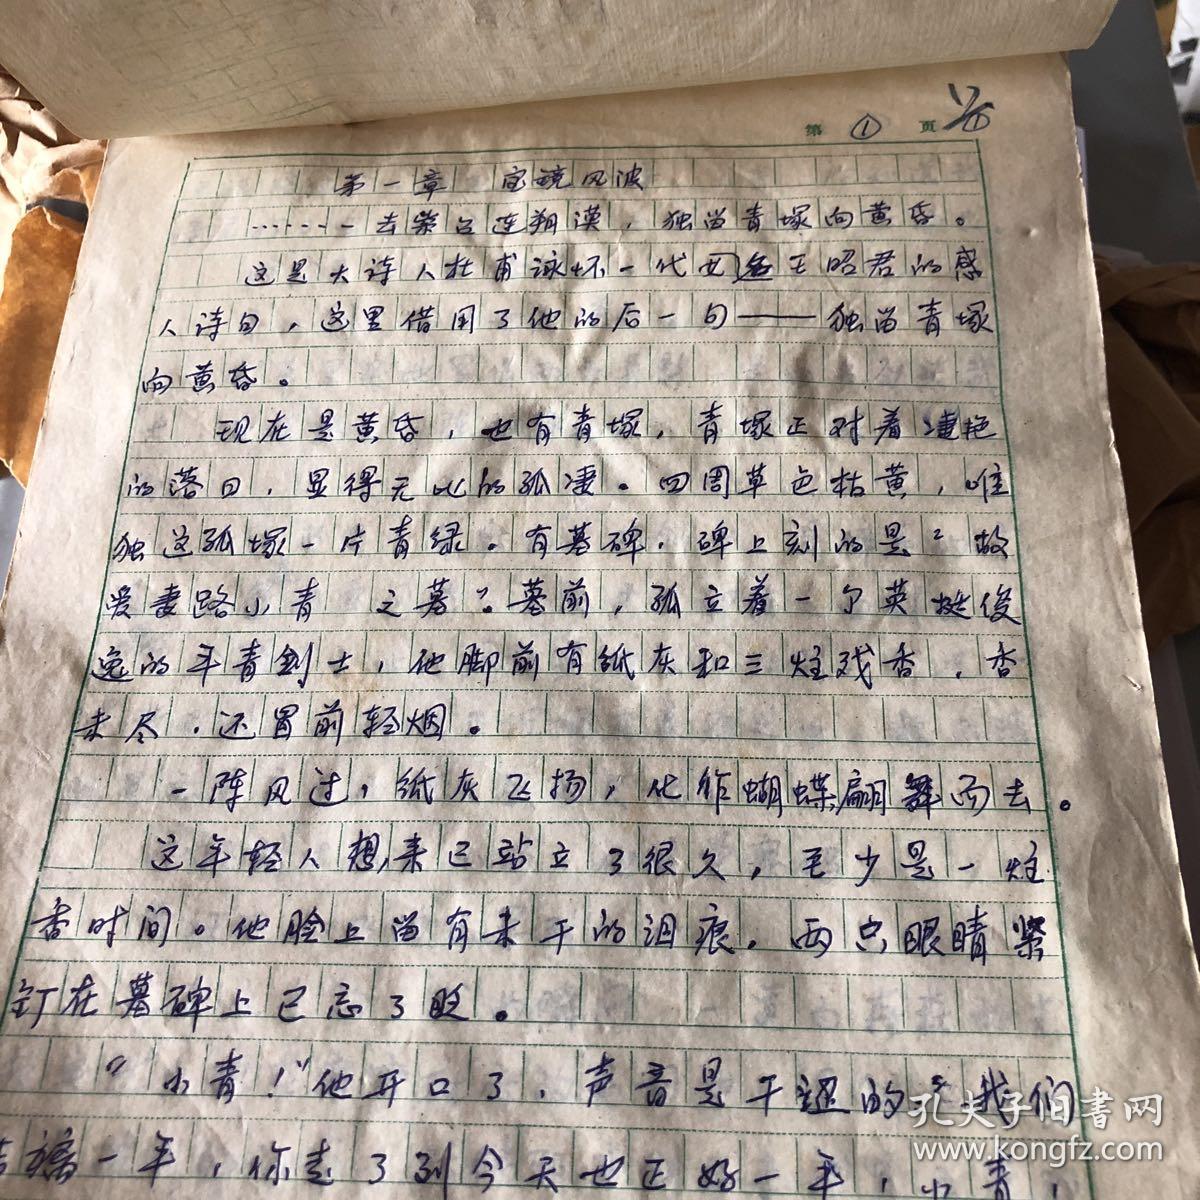 第 ① 页
第一章 宝镜风波
……一去紫台连朔漠，独留青塚向黄昏。
这是大诗人杜甫詠怀一代西施王昭君的感
人诗句，这里借用了他的后一句——独留青塚
向黄昏。
现在是黄昏，也有青塚，青塚正对着凄艳
的落日，显得无比的孤凄。四周草色枯黄，唯
独这孤塚一片青绿。有墓碑，碑上刻的是“故
爱妻路小青 之墓”。墓前，孤立着一个英挺俊
逸的年青剑士，他脚前有纸灰和三炷残香，香
未尽，还冒前轻烟。
一阵风过，纸灰飞扬，化作蝴蝶翩舞而去。
这年轻人想来已站立了很久，至少是一炷
香时间。他脸上留有未干的泪痕，两只眼睛紧
钉在墓碑上已忘了眨。
“小青！”他开口了，声音是干涩的“我们
结褵一年，你走了到今天也正好一年，小青，
孔夫子旧书网
www.kongfz.com